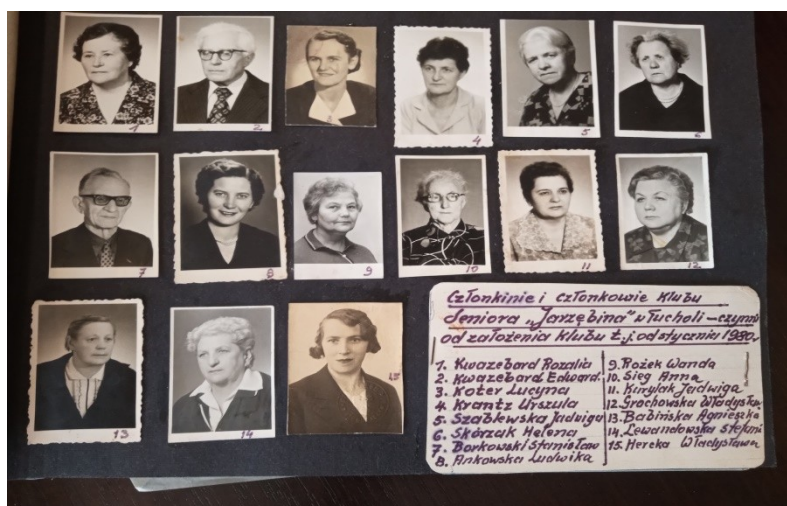 1
2
4
5
6
7
8
9
10
11
12
13
14
15
Członkinie i członkowie Klubu
Seniora „Jarzębina" w Tucholi – czynni
od założenia klubu t.j. od stycznia 1980.
1. Kwazebard Rozalia
2. Kwazebard Edward.
3. Koter Lucyna
4. Krantz Urszula
5. Szablewska Jadwiga
6. Skórzak Helena
7. Borkowski Stanisław
8. Ankowska Ludwika
9. Rożek Wanda
10. Sieg Anna
11. Kurylak Jadwiga
12. Grochowska Władysław
13. Babińska Agnieszka
14. Lewandowska Stefani
15. Hercka Władysława